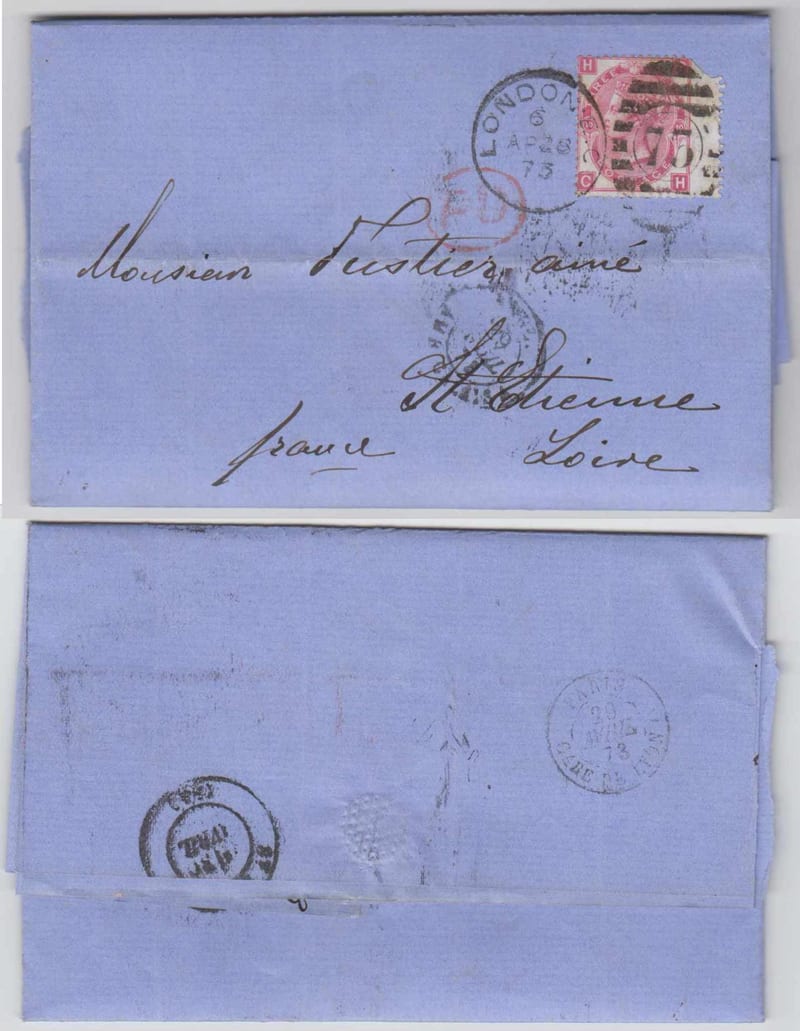 LONDON E.C
6
AP 28
73
H
THREE PENCE
C H
75
PD
Monsieur Fustier ainé
St Etienne
france Loire
PARIS
29
AVRIL
73
GARE DE LYON
AVRIL